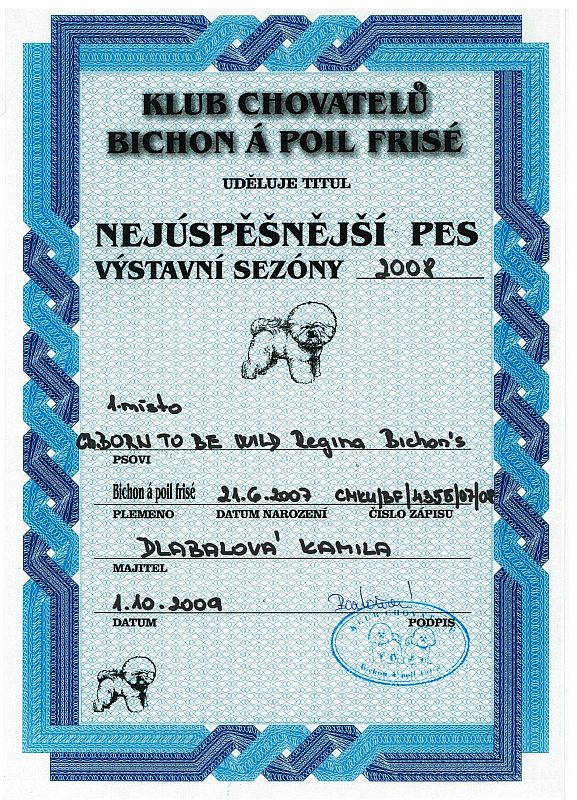 KLUB CHOVATELŮ
BICHON Á POIL FRISÉ
UDĚLUJE TITUL
NEJÚSPĚŠNĚJŠÍ PES
VÝSTAVNÍ SEZÓNY 2008
1. místo
Ch. BORN TO BE WILD Regina Bichon's
PSOVI
Bichon á poil frisé 21.6.2007 CMKU/BF/4355/07/08
PLEMENO DATUM NAROZENÍ ČÍSLO ZÁPISU
DLABALOVÁ KAMILA
MAJITEL
1.10.2009
DATUM PODPIS
KLUB CHOVATELŮ
Bichon á poil frisé